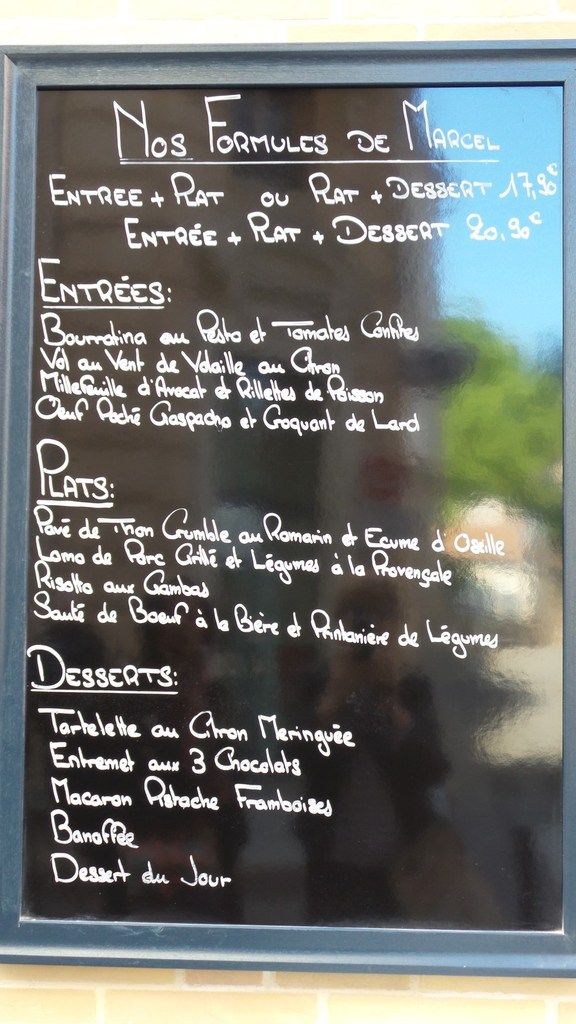 Nos Formules de Marcel
Entree + Plat ou Plat + Dessert 17,90€
Entrée + Plat + Dessert 20,90€
Entrées:
Bourratina au Pesto et Tomates Confites
Vol au Vent de Volaille au Citron
Millefeuille d'Avocat et Rillettes de Poisson
Oeuf Poché Gaspacho et Croquant de Lard
Plats:
Pavé de Thon Crumble au Romarin et Ecume d'Oseille
Lomo de Porc Grillé et Légumes à la Provençale
Risotto aux Gambas
Sauté de Boeuf à la Bière et Printanière de Légumes
Desserts:
Tartelette au Citron Meringuée
Entremet aux 3 Chocolats
Macaron Pistache Framboises
Banoffee
Dessert du Jour